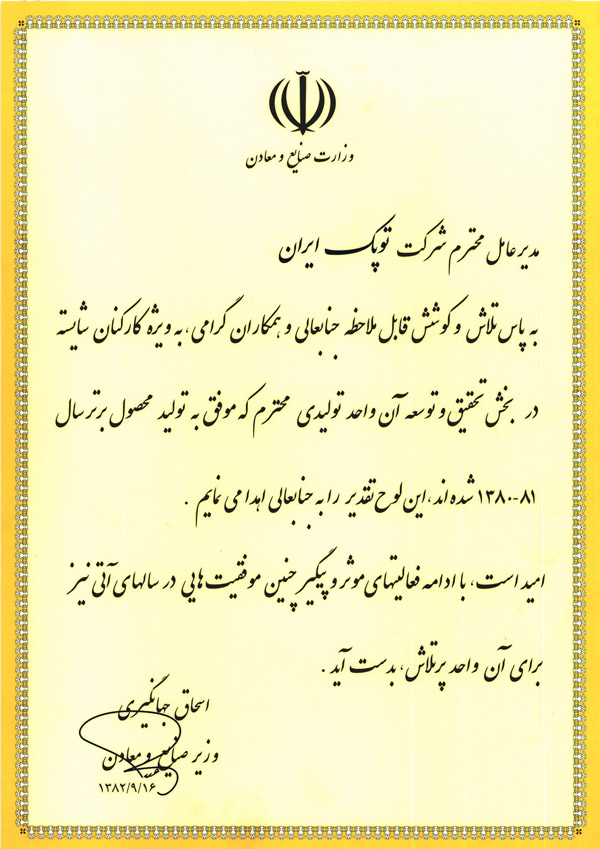 وزارت صنایع و معادن
مدیر عامل محترم شرکت توپک ایران
به پاس تلاش و کوشش قابل ملاحظه جنابعالی و همکاران گرامی، به ویژه کارکنان شایسته
در بخش تحقیق و توسعه آن واحد تولیدی محترم که موفق به تولید محصول برتر سال
۱۳۸۰-۸۱ شده اند، این لوح تقدیر را به جنابعالی اهدا می نمایم .
امید است، با ادامه فعالیتهای موثر و پیگیر چنین موفقیت هایی در سالهای آتی نیز
برای آن واحد پرتلاش، بدست آید .
اسحاق جهانگیری
وزیر صنایع و معادن
۱۳۸۲/۹/۱۶